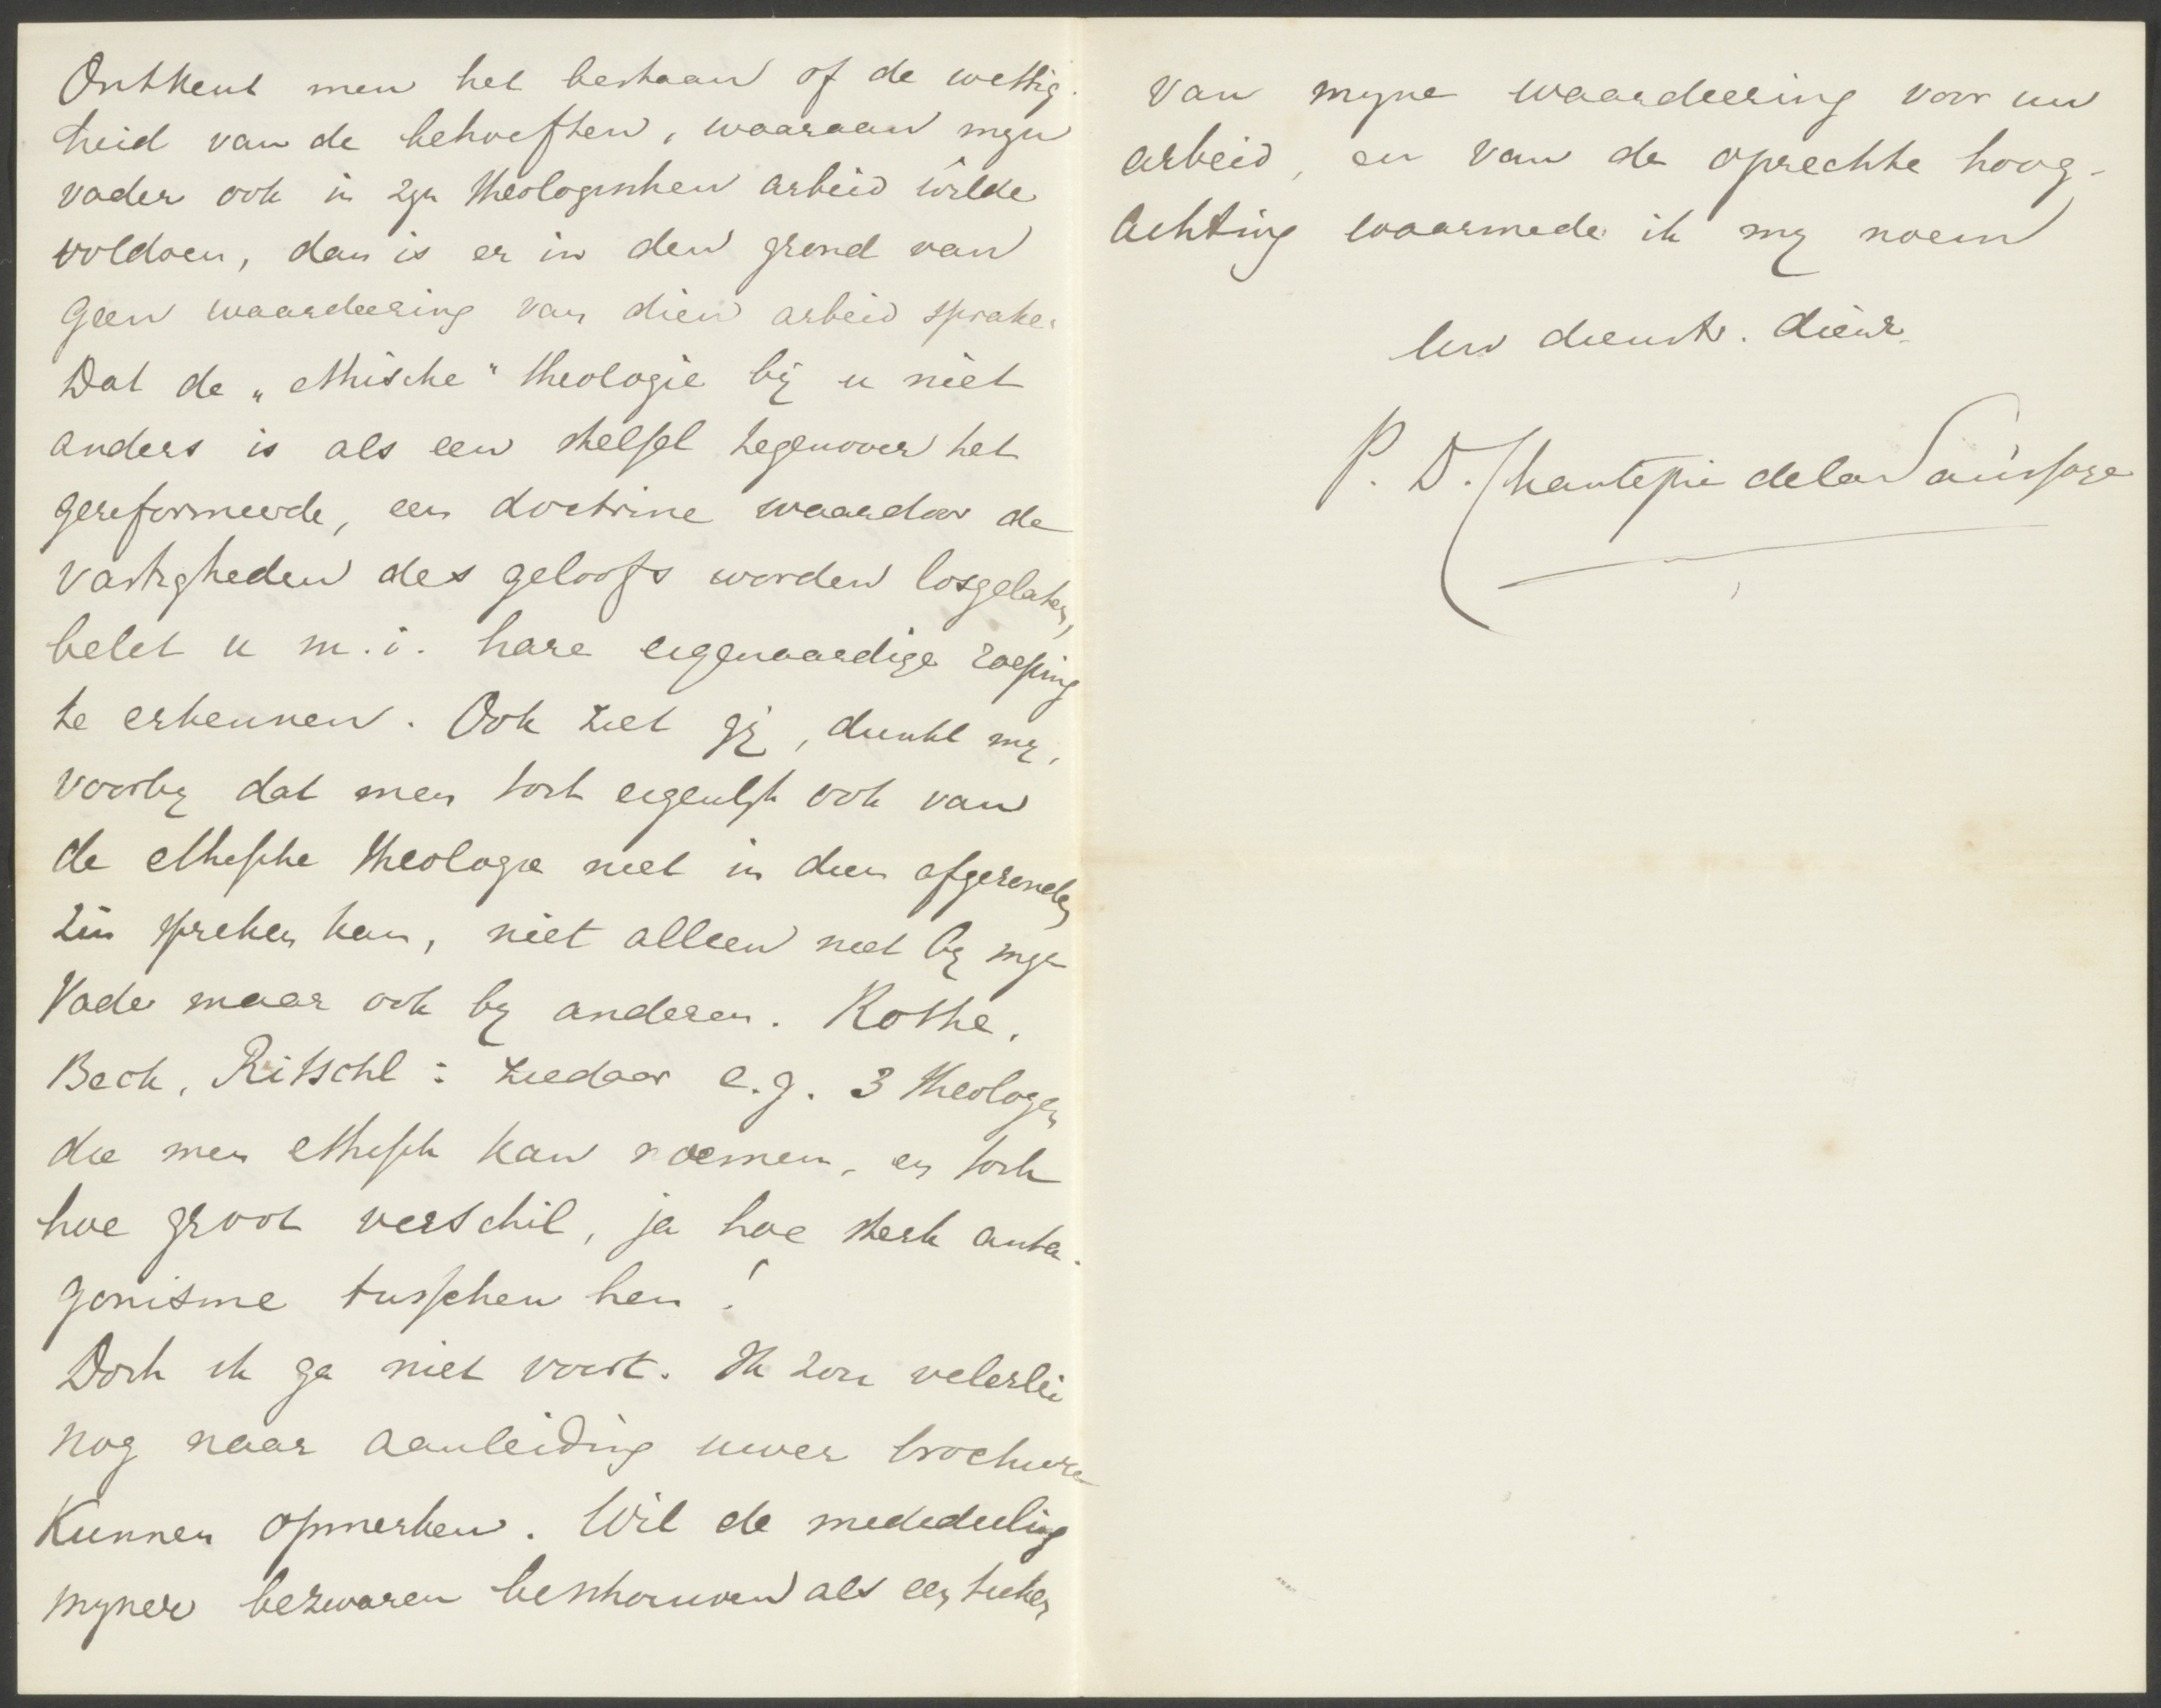 Ontkent men het bestaan of de wettig-
heid van de behoeften, waaraan mijn
vader ook in zijn theologischen arbeid wilde
voldoen, dan is er in den grond van
geen waardeering van dien arbeid sprake.
Dat de „ethische" theologie bij u niet
anders is als een stelsel tegenover het
gereformeerde, een doctrine waardoor de
vastigheden des geloofs worden losgelaten,
belet u m.i. hare eigenaardige roeping
te erkennen. Ook ziet gij, dunkt mij,
voorbij dat men toch eigenlijk ook van
de ethische theologie niet in dien afgeronden
zin spreken kan, niet alleen niet bij mijn
Vader maar ook bij anderen. Rothe,
Beck, Ritschl: ziedaar e.g. 3 theologen
die men ethisch kan noemen, en toch
hoe groot verschil, ja hoe sterk anta-
gonisme tusschen hen!
Doch ik ga niet voort. Ik zou velerlei
nog naar aanleiding uwer brochure
kunnen opmerken. Wil de mededeeling
mijner bezwaren beschouwen als een teeken
van mijne waardeering voor uw
arbeid, en van de oprechte hoog-
achting waarmede ik mij noem
Uw dienstw. dienr.
P. D. Chantepie de la Saussaye